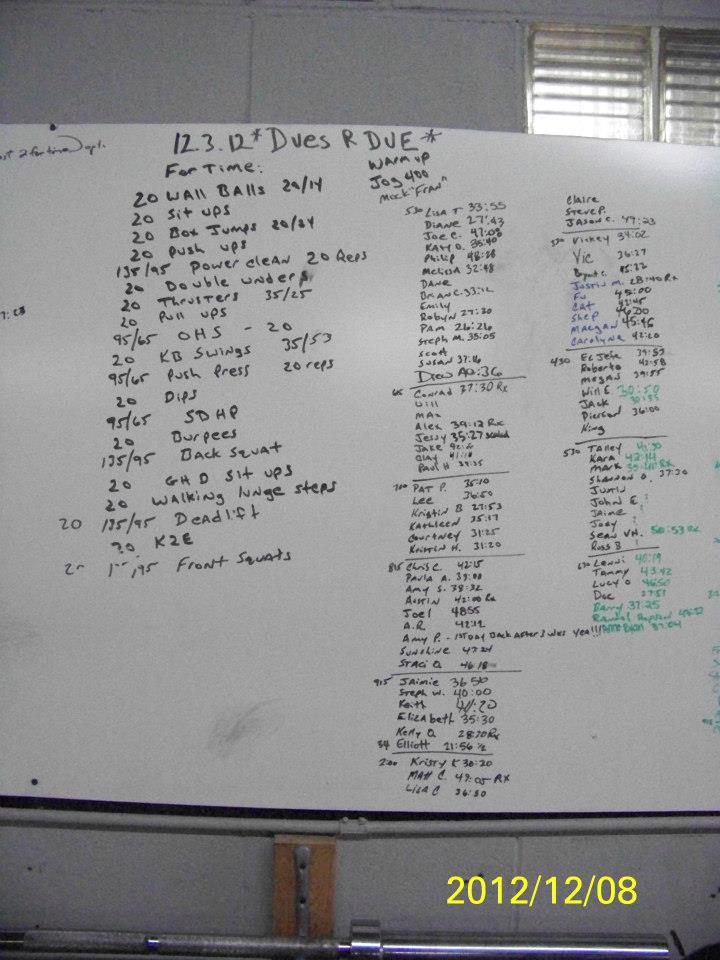 12.3.12 * Dues R DUE *
For Time:
20 WALL BALLS 20/14
20 Sit ups
20 Box Jumps 20/24
20 Push ups
135/95 Power clean 20 Reps
20 Double unders
20 Thrusters 35/25
20 Pull ups
95/65 OHS - 20
20 KB Swings 35/53
95/65 Push Press 20 reps
20 Dips
95/65 SDHP
20 Burpees
135/95 Back Squat
20 GHD Sit ups
20 Walking lunge steps
20 135/95 Deadlift
20 K2E
Front Squats
Warm up
Jog 400
Mock "Fran"
530 Lisa T 33:55
Diane 27:43
Joe C. 47:03
Katy O. 35:40
Philip 48:28
Melissa 32:48
DANE
Brian C. 33:12
Emily
Robyn 27:30
Pam 26:26
Steph M. 35:05
Scott
Susan 37:16
Drew 40:36
Conrad 37:30 Rx
Will
Max
Alex 39:12 Rx
Jessy 35:27 scaled
Jake
Clay 41:10
Paul H 39:35
PAT P. 35:10
Lee 36:50
Kristin B 27:53
Kathleen 35:17
Courtney 31:25
Kristin H. 31:20
815 Chris C. 42:15
Paula A. 39:00
Amy S. 38:32
Austin 42:00 Rx
Joel 4855
A.R 42:12
Amy P. - 1st Day Back after 3 wks Yea!!!
Sunshine 47:24
Staci O 46:18
915 Jaimie 36 50
Steph W. 40:00
Keith 41:20
Elizabeth 35:30
Kelly O 28:20 Rx
Elliott 21:56 ½
200 Kristy K 30:20
Matt C. 47:05 RX
Lisa C 36:50
Claire
Steve P.
Jason C. 47:23
530 Vickey 34:02
Vic 36:27
Bryant C. 45:22
Justin M. 28:40 Rx
Fu 45:00
Cat 42:45
Shep 46:00
Maegan 45:46
Carolyne 42:20
430 El Jefe 39:53
Roberto 42:58
Megas 39:55
Will E. 30:50
Jack
Pierson 36:00
King
530 Talley 41:30
Kara 42:14
Mark
Shannon O. 37:30
Justin
John E. ?
Jaime
Joey ?
Sean VH. 50:53 Rx
Russ B
630 Lenni 40:19
Tammy 43:42
Lucy O 46:50
Doc 37:51
Barry 37:25
37:04
2012/12/08